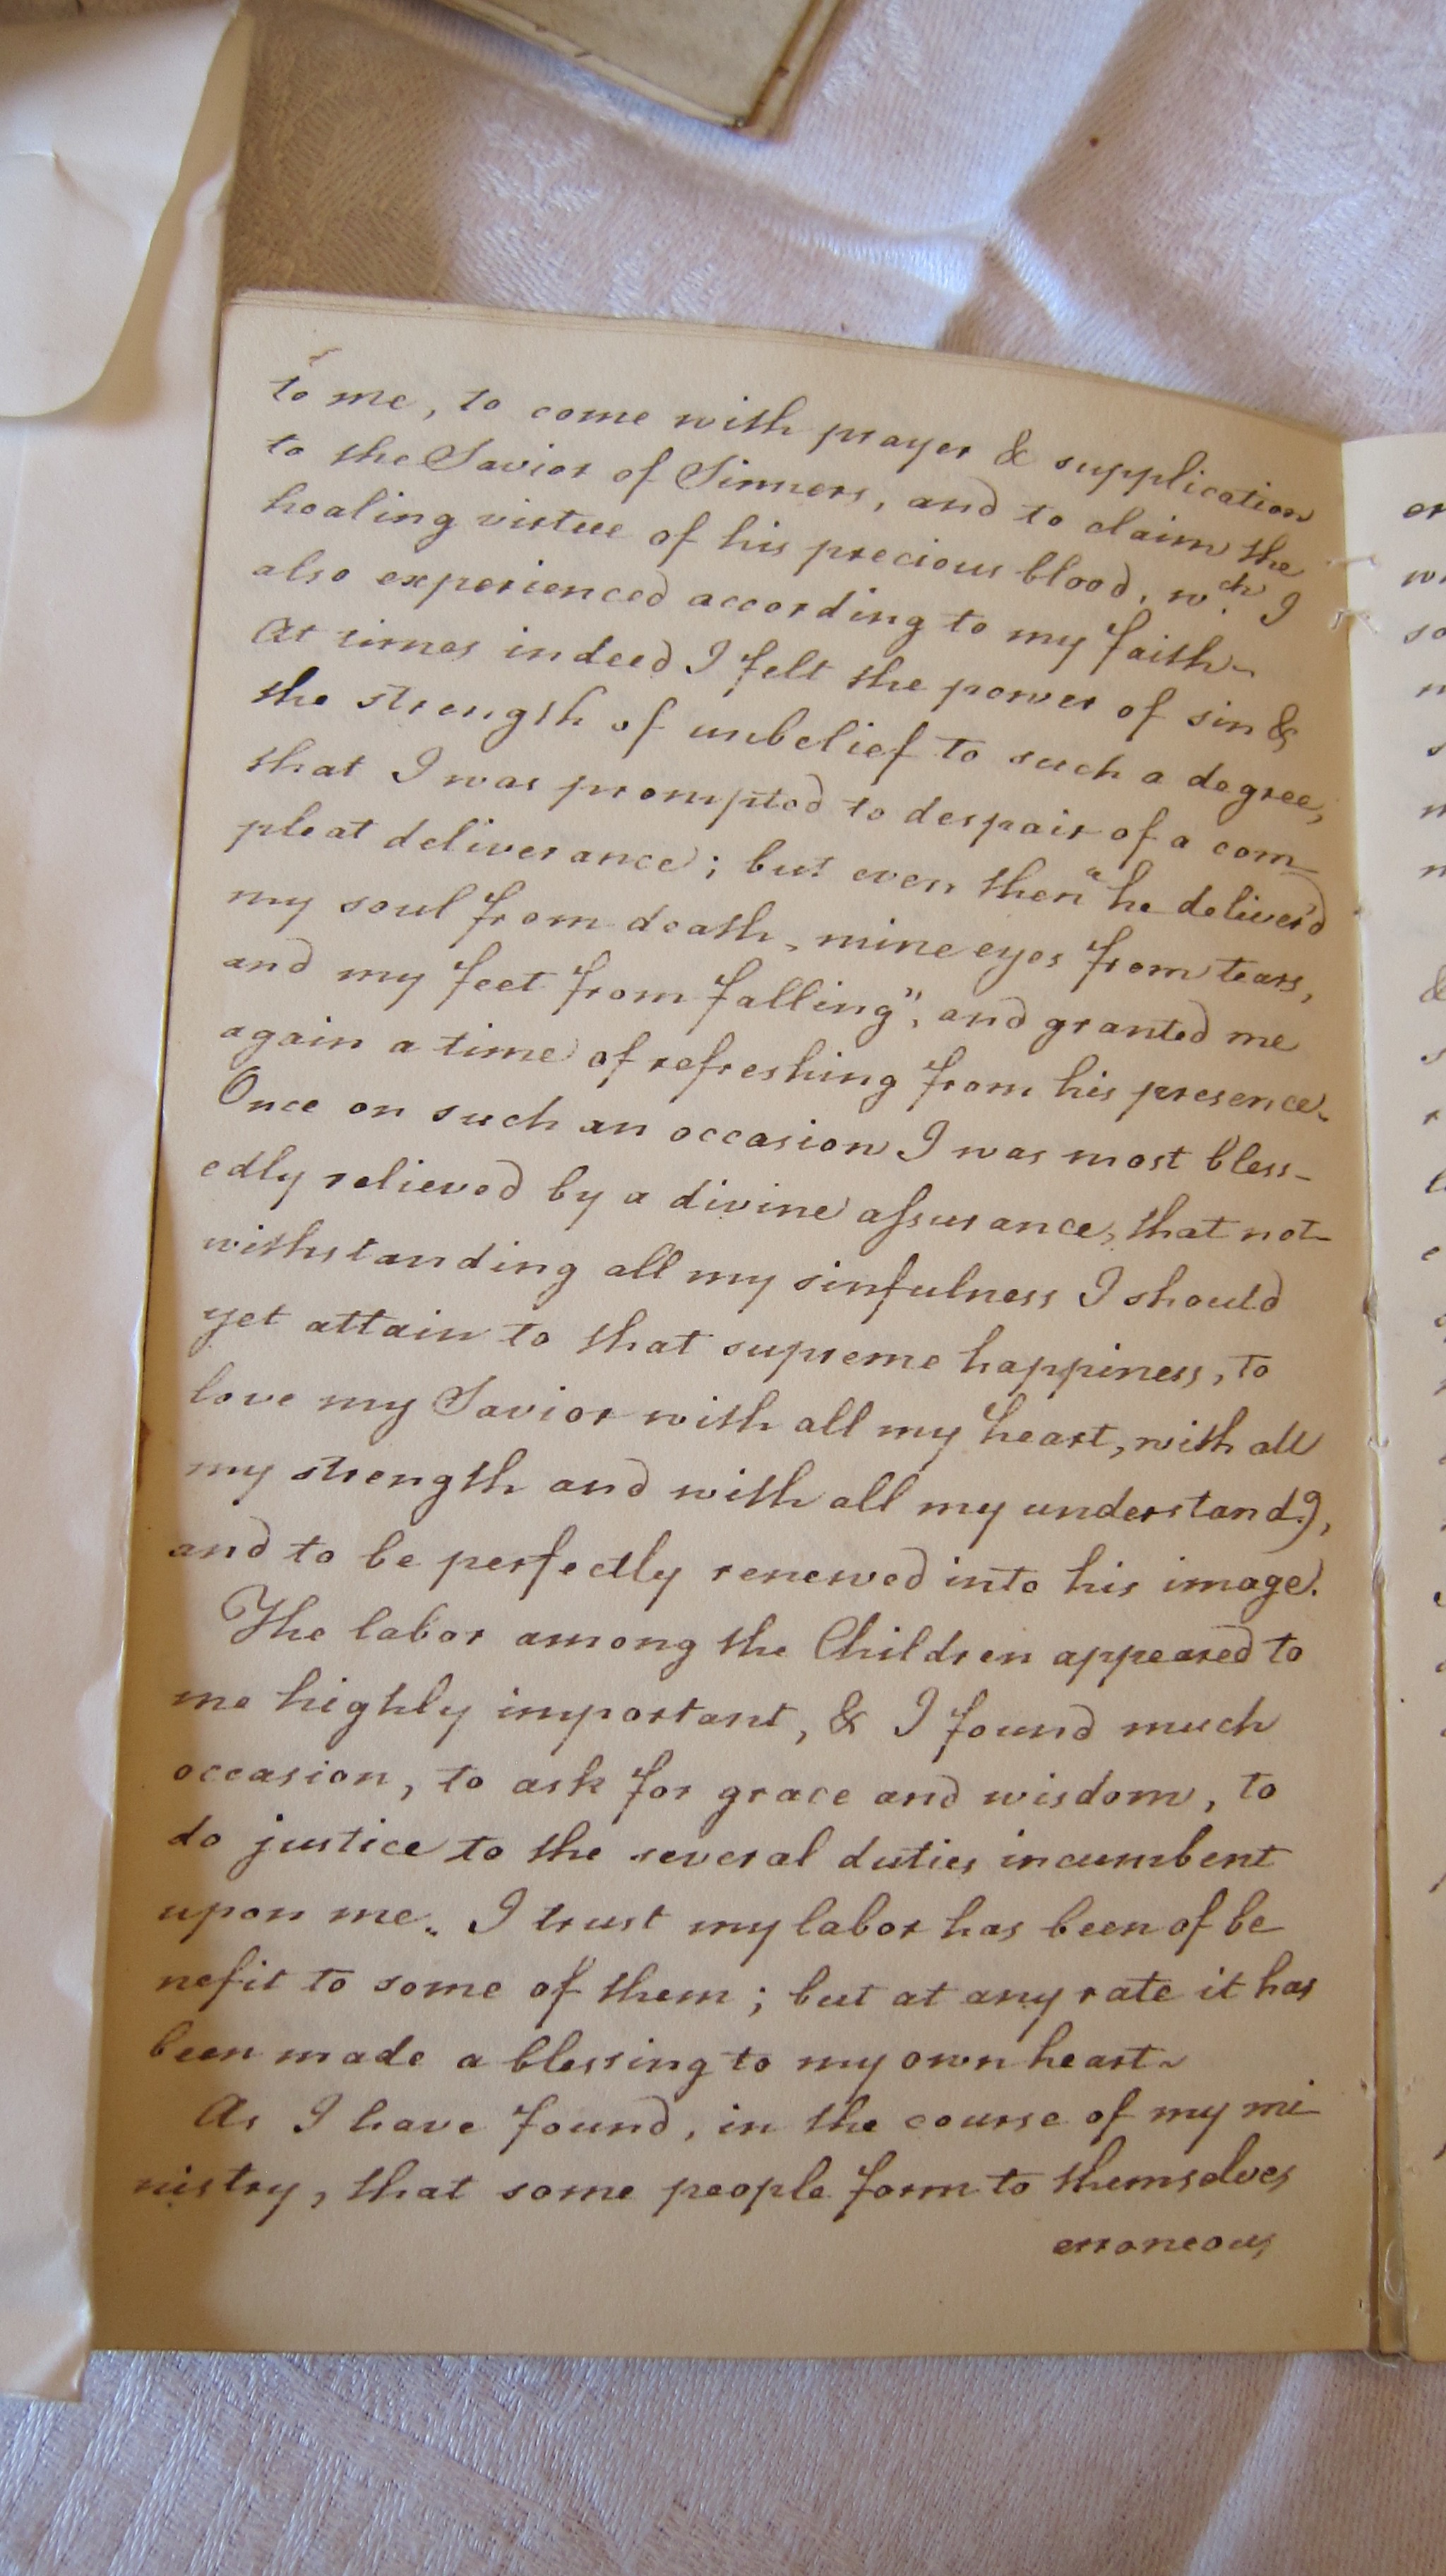 to me, to come with prayer & supplication
to the Savior of Sinners, and to claim the
healing virtue of his precious blood, wch. I
also experienced according to my faith~
At times indeed I felt the power of sin &
the strength of unbelief to such a degree,
that I was prompted to despair of a com-
pleat deliverance; but even then "he deliver'd
my soul from death, mine eyes from tears,
and my feet from falling", and granted me
again a time of refreshing from his presence.
Once on such an occasion I was most bless-
edly relieved by a divine assurance, that not-
withstanding all my sinfulness I should
yet attain to that supreme happiness, to
love my Savior with all my heart, with all
my strength and with all my understandg.,
and to be perfectly renewed into his image.
The labor among the Children appeared to
me highly important, & I found much
occasion, to ask for grace and wisdom, to
do justice to the several duties incumbent
upon me. I trust my labor has been of be
nefit to some of them; but at any rate it has
been made a blessing to my own heart~
As I have found, in the course of my mi-
nistry, that some people form to themselves
erroneous